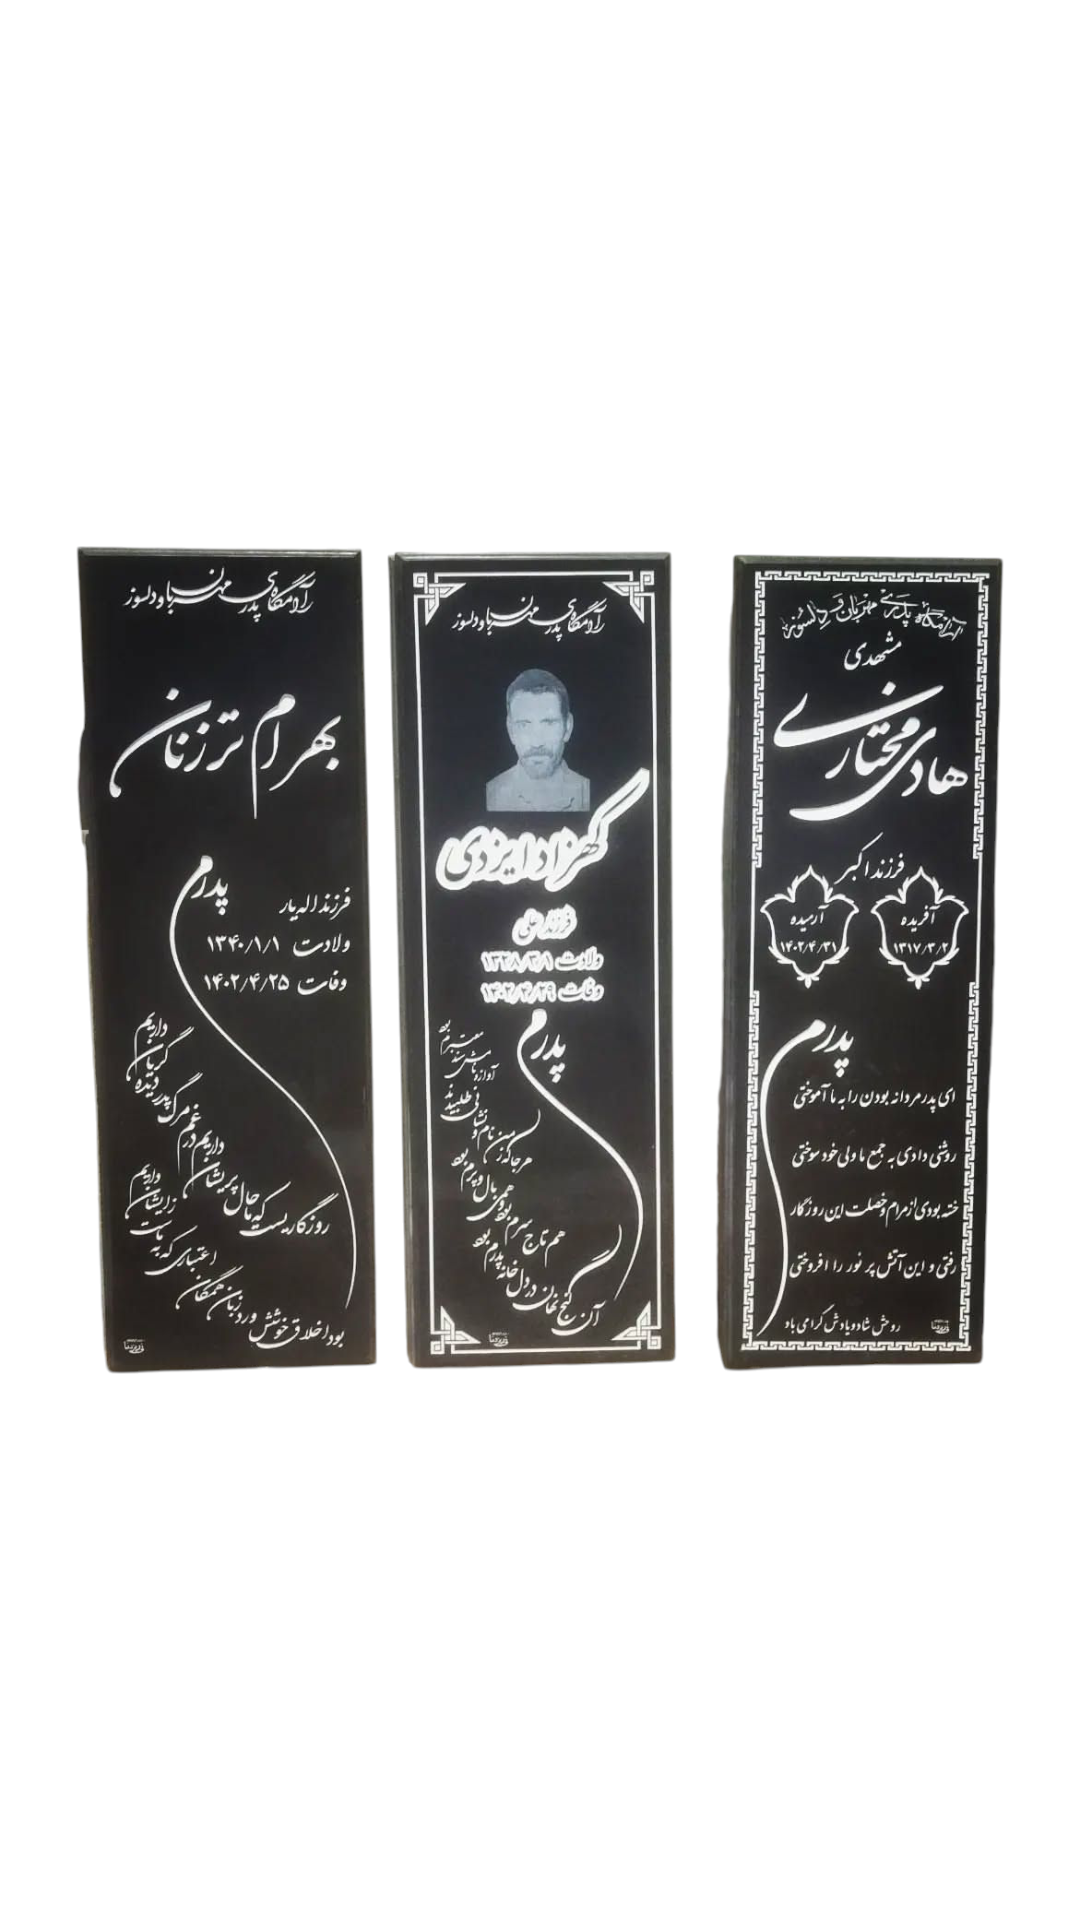 آرامگاه پدری مهربان و دلسوز
مشهدی
هادی مختاری
فرزند اکبر
آفریده
۱۳۱۷/۳/۲
آرمیده
۱۴۰۲/۴/۳۱
پدرم
ای پدر مردانه بودن را به ما آموختی
روشنی دادی به جمع ما ولی خود سوختی
خسته بودی از مرام و خصلت این روزگار
رفتی و این آتش پر نور را افروختی
روحش شاد و یادش گرامی باد
آرامگاه پدری مهربان و دلسوز
گهزاد ایزدی
فرزند علی
ولادت
وفات
پدرم
آن گنج نهان در دل خانه پدرم بود
هم تاج سرم بود و همی بال و پرم بود
هر جا که ز من نام و نشانی طلبیدند
آوازه نامش سند معتبرم بود
آرامگاه پدری مهربان و دلسوز
بهرام ترزنان
پدرم
فرزند اله یار
ولادت ۱۳۴۰/۱/۱
وفات ۱۴۰۲/۴/۲۵
روزگاریست که ما حال پریشان داریم
در غم مرگ پدر دیده گریان داریم
بود اخلاق خوشش ورد زبان همگان
اعتباری که به ماست ز ایشان داریم